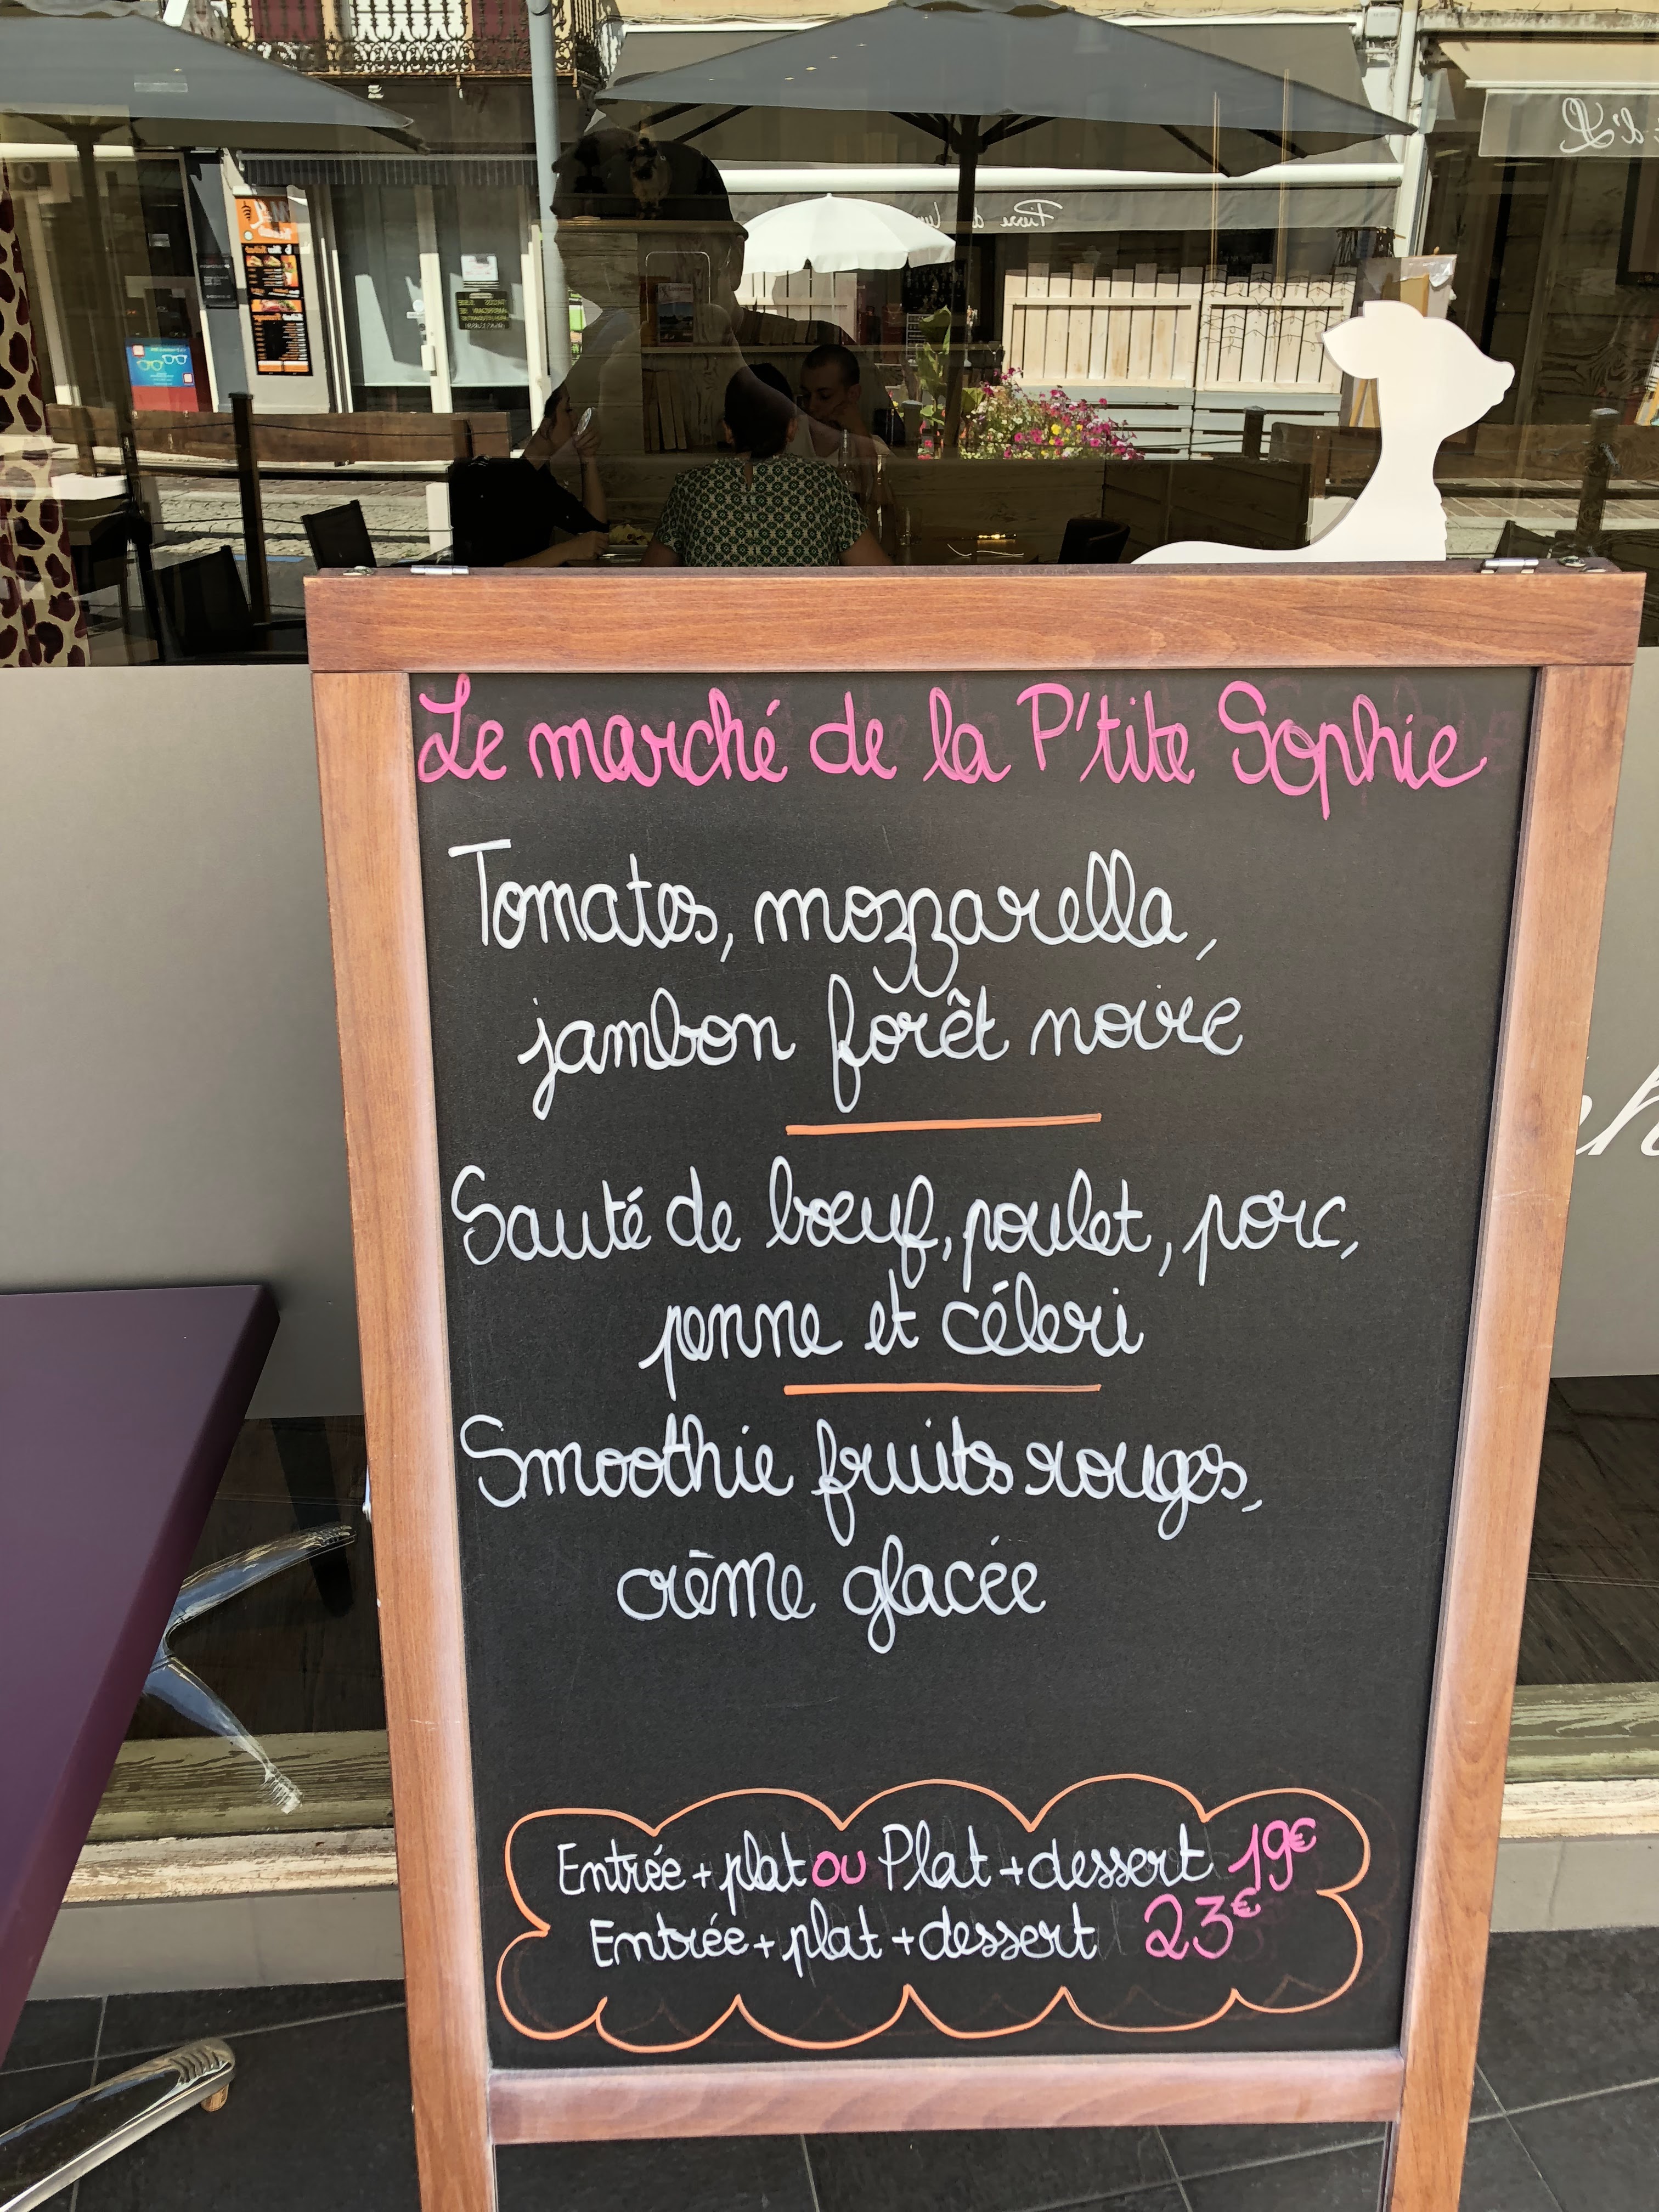 Le marché de la P'tite Sophie
Tomates, mozzarella,
jambon forêt noire
Sauté de bœuf, poulet, porc,
penne et céleri
Smoothie fruits rouges,
crème glacée
Entrée + plat ou Plat + dessert 19€
Entrée + plat + dessert 23€